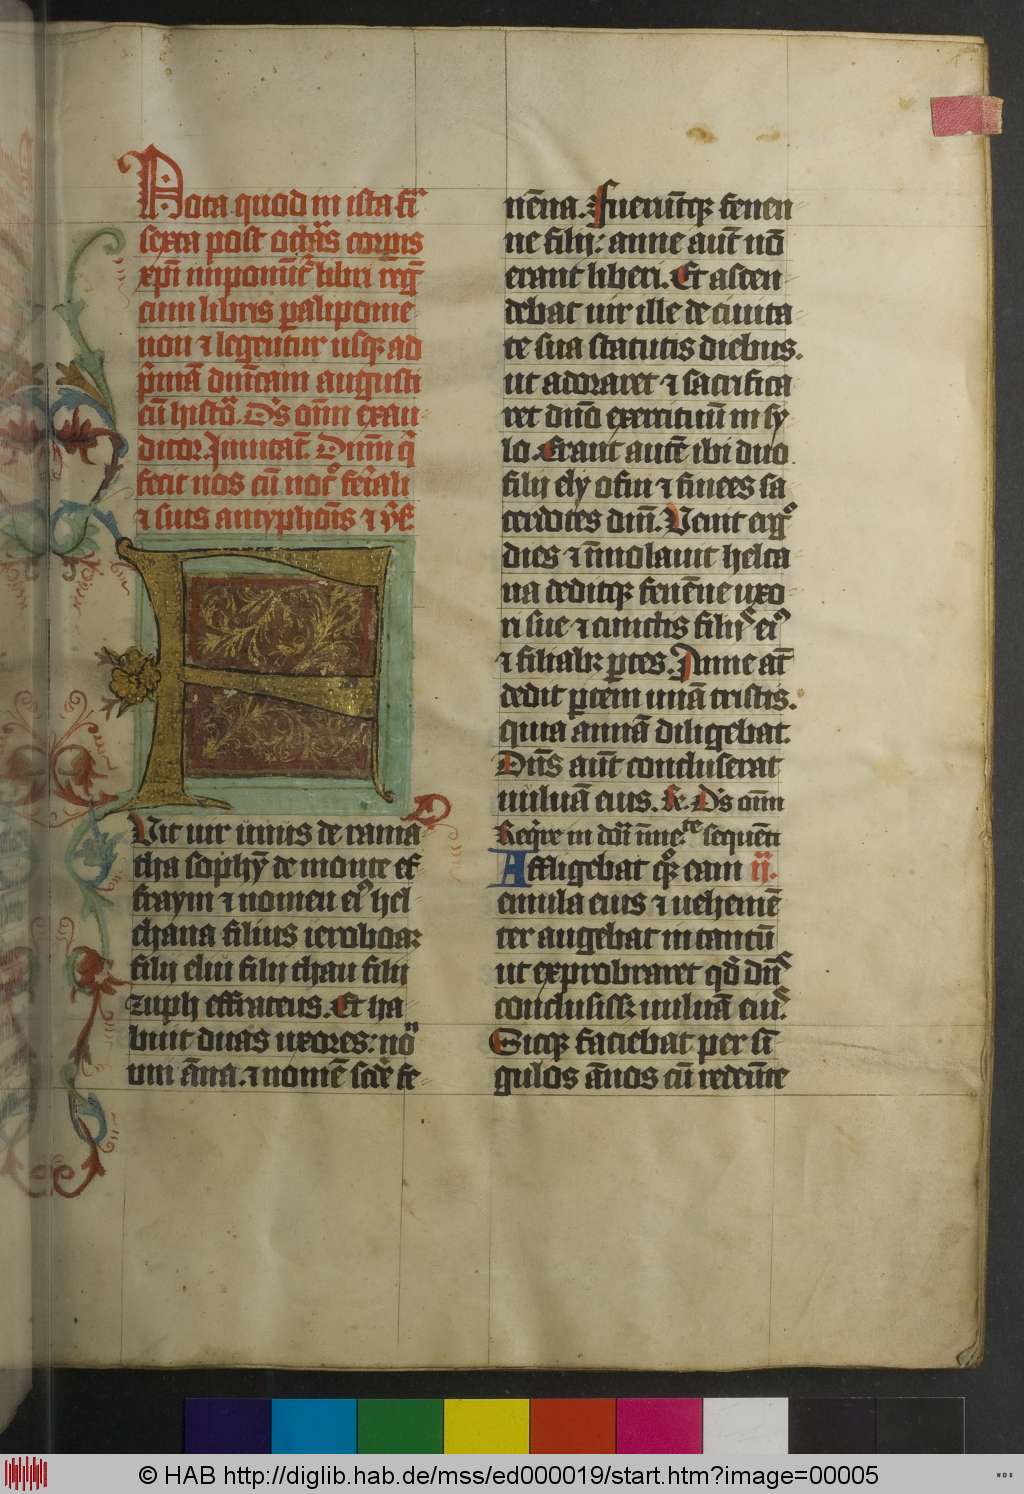 Nota quod in ista fr̄
sexta post octa͛s corp̱is
xp̄i imponūt͛ libri reg̅
cum libris ꝑalipome
non ⁊ legentur usqꝫ ad
p̄mā dn̄icam augusti
cū histo͛. D͛s om̄i exau
ditor. Inuitat̄. Dn̄m q͛
fecit nos cū noct͛ fer͛ali
⁊ suis antyphoīs ⁊ v͛ẜ
F
Vit uir unus de rama
tha sophȳ de monte ef
fraym ⁊ nomen ei᷒ hel
chana filius ieroboaꝛ
filij eliu filij thau filij
zuph effrateus. Et ha
buit duas uxores: no͛
uni āna. ⁊ nomē scd̄e fe
nēna. Fueruntqꝫ fenen
ne filij: anne aut̄ nō
erant liberi. Et ascen
debat uir ille de ciuita
te sua statutis diebus.
ut adoraret ⁊ sacrifica
ret dn̄o exercituū in sy
lo. Erant autē ibi duo
filij ely ofni ⁊ finees sa
cerdotes dn̄i. Venit erg͛
dies ⁊ īmolauit helca
na deditqꝫ fenēne uxo
ri sue ⁊ cunctis filijs ei᷒
⁊ filiabꝫ ꝑtes. Anne at̄
dedit ꝑtem unā tristis.
quia annā diligebat.
Dn̄s aūt concluserat
uuluā eius. D͛s om̄
Req̄re in sequen̄
Affligebat q͛ꝫ eam ij.
emula eius ⁊ uehemē
ter angebat in tantū
ut exprobraret qd̄ dn͛s
conclusisꝫ uuluā eius.
Sicqꝫ faciebat per sī
gulos ānos cū redeūte
© HAB http://diglib.hab.de/mss/ed000019/start.htm?image=00005